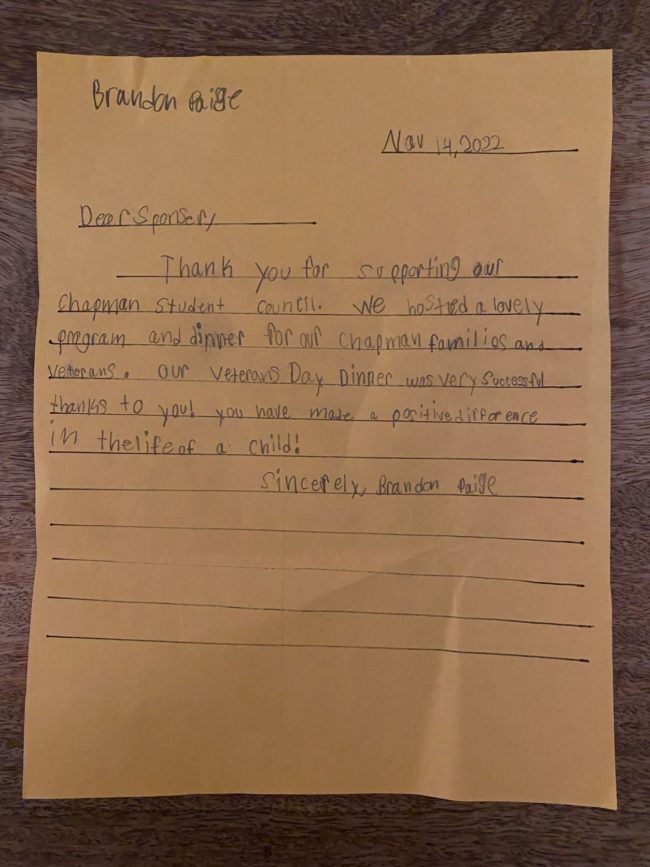 Brandon Paige
Nov 14, 2022
Dear Sponser,
Thank you for supporting our
Chapman Student council. We hosted a lovely
program and dinner for our Chapman families and
Vetterans. Our Veterans Day Dinner was very Successful
thanks to you! you have made a positive difference
in the life of a child!
Sincerely, Brandon Paige